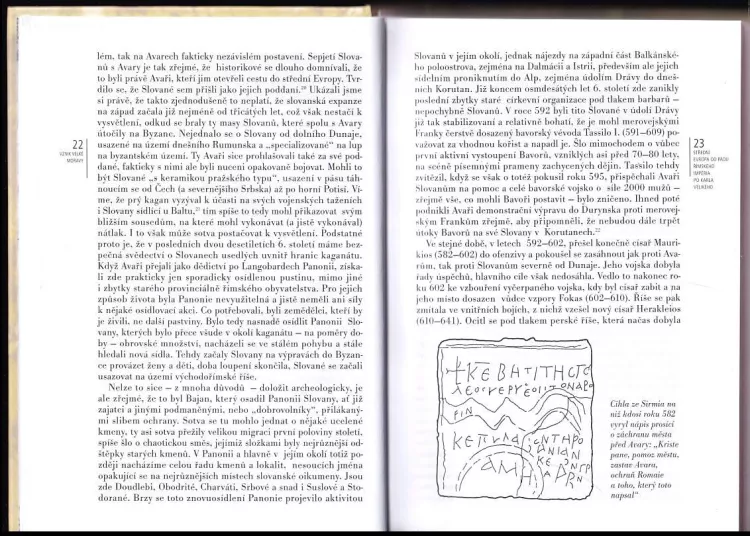 lém, tak na Avarech fakticky nezávislém postavení. Sepjetí Slova-
nů s Avary je tak zřejmé, že historikové se dlouho domnívali, že
to byli právě Avaři, kteří jim otevřeli cestu do střední Evropy. Tvr-
dilo se, že Slované sem přišli jako jejich poddaní.²⁰ Ukázali jsme
si právě, že takto zjednodušeně to neplatí, že slovanská expanze
na západ začala již nejméně od třicátých let, což však nestačí k
vysvětlení, odkud se braly ty masy Slovanů, které spolu s Avary
útočily na Byzanc. Nejednalo se o Slovany od dolního Dunaje,
usazené na území dnešního Rumunska a „specializované“ na lup
na byzantském území. Ty Avaři sice prohlašovali také za své pod-
dané, fakticky s nimi ale byli nuceni opakovaně bojovat. Mohli to
být Slované „s keramikou pražského typu“, usazení v pásu táh-
noucím se od Čech (a severnějšího Srbska) až po horní Potisí. Ví-
me, že prý kagan vyzýval k účasti na svých vojenských taženích
i Slovany sídlící u Baltu,²¹ tím spíše to tedy mohl přikazovat svým
bližším sousedům, na které mohl vykonávat (a jistě vykonával)
nátlak. I to však může sotva postačovat k vysvětlení. Podstatné
proto je, že v posledních dvou desetiletích 6. století máme bez-
pečná svědectví o Slovanech usedlých uvnitř hranic kaganátu.
Když Avaři přejali jako dědictví po Langobardech Panonii, získa-
li zde prakticky jen sporadicky osídlenou pustinu, mimo jiné
i zbytky starého provinciálně římského obyvatelstva. Pro jejich
způsob života byla Panonie nevyužitelná a jistě neměli ani síly
k nějaké osidlovací akci. Co potřebovali, byli zemědělci, kteří by
je živili, ne další pastviny. Bylo tedy nasnadě osídlit Panonii Slo-
vany, kterých bylo přece všude v okolí kaganátu - na poměry do-
by - obrovské množství, nacházeli se ve stálém pohybu a stále
hledali nová sídla. Tehdy začaly Slovany na výpravách do Byzan-
ce provázet ženy a děti, doba loupení skončila, Slované se začali
usazovat na území východořímské říše.
Nelze to sice – z mnoha důvodů – doložit archeologicky, je
ale zřejmé, že to byl Bajan, který osadil Panonii Slovany, ať již
zajatci a jinými podmaněnými, nebo „dobrovolníky“, přilákaný-
mi slibem ochrany. Sotva se tu mohlo jednat o nějaké ucelené
kmeny, ty asi sotva přežily velikou migraci první poloviny století,
spíše šlo o chaotickou směs, jejímiž složkami byly nejrůznější od-
štěpky starých kmenů. V Panonii a hlavně v jejím okolí totiž po-
zději nacházíme celou řadu kmenů a lokalit, nesoucích jména
opakující se na nejrůznějších místech slovanské oikumeny. Jsou
zde Doudlebi, Obodrité, Charváti, Srbové a snad i Suslové a Sto-
dorané. Brzy se toto znovuosídlení Panonie projevilo aktivitou
22
VZNIK VELKÉ
MORAVY
Slovanů v jejím okolí, jednak nájezdy na západní část Balkánské-
ho poloostrova, zejména na Dalmácii a Istrii, především ale jejich
sídelním proniknutím do Alp, zejména údolím Drávy do dneš-
ních Korutan. Již koncem osmdesátých let 6. století zde zanikly
poslední zbytky staré církevní organizace pod tlakem barbarů –
nepochybně Slovanů. V roce 592 byli tito Slované v údolí Drávy
již tak stabilizovaní a relativně bohatí, že je mohl merovejskými
Franky čerstvě dosazený bavorský vévoda Tassilo I. (591–609) po-
važovat za vhodnou kořist a napadl je. Šlo mimochodem o vůbec
první aktivní vystoupení Bavorů, vzniklých asi před 70–80 lety,
na scéně písemnými prameny zachycených dějin. Tassilo tehdy
zvítězil, když se však o totéž pokusil roku 595, přispěchali Avaři
Slovanům na pomoc a celé bavorské vojsko o síle 2000 mužů –
zřejmě vše, co mohli Bavoři postavit – bylo zničeno. Ihned poté
podnikli Avaři demonstrační výpravu do Durynska proti merovej-
ským Frankům zřejmě, aby připomněli, že nebudou dále trpět
útoky Bavorů na své Slovany v Korutanech.²²
Ve stejné době, v letech 592–602, přešel konečně císař Mauri-
kios (582–602) do ofenzivy a pokoušel se zasáhnout jak proti Ava-
rům, tak proti Slovanům severně od Dunaje. Jeho vojska dobyla
řady úspěchů, hlavního cíle však nedosáhla. Vedlo to nakonec ro-
ku 602 ke vzbouření vyčerpaného vojska, kdy byl císař zabit a na
jeho místo dosazen vůdce vzpory Fokas (602–610). Říše se pak
zmítala ve vnitřních bojích, z nichž vzešel nový císař Herakleios
(610–641). Ocitl se pod tlakem perské říše, která načas dobyla
23
STŘEDNÍ
EVROPA OD PÁDU
ŘÍMSKÉHO
IMPÉRIA
PO KARLA
VELIKÉHO
Cihla ze Sirmia na
níž kdosi roku 582
vyryl nápis prosící
o záchranu města
před Avary: „Kriste
pane, pomoz městu,
zastav Avara,
ochraň Romaie
a toho, který toto
napsal“